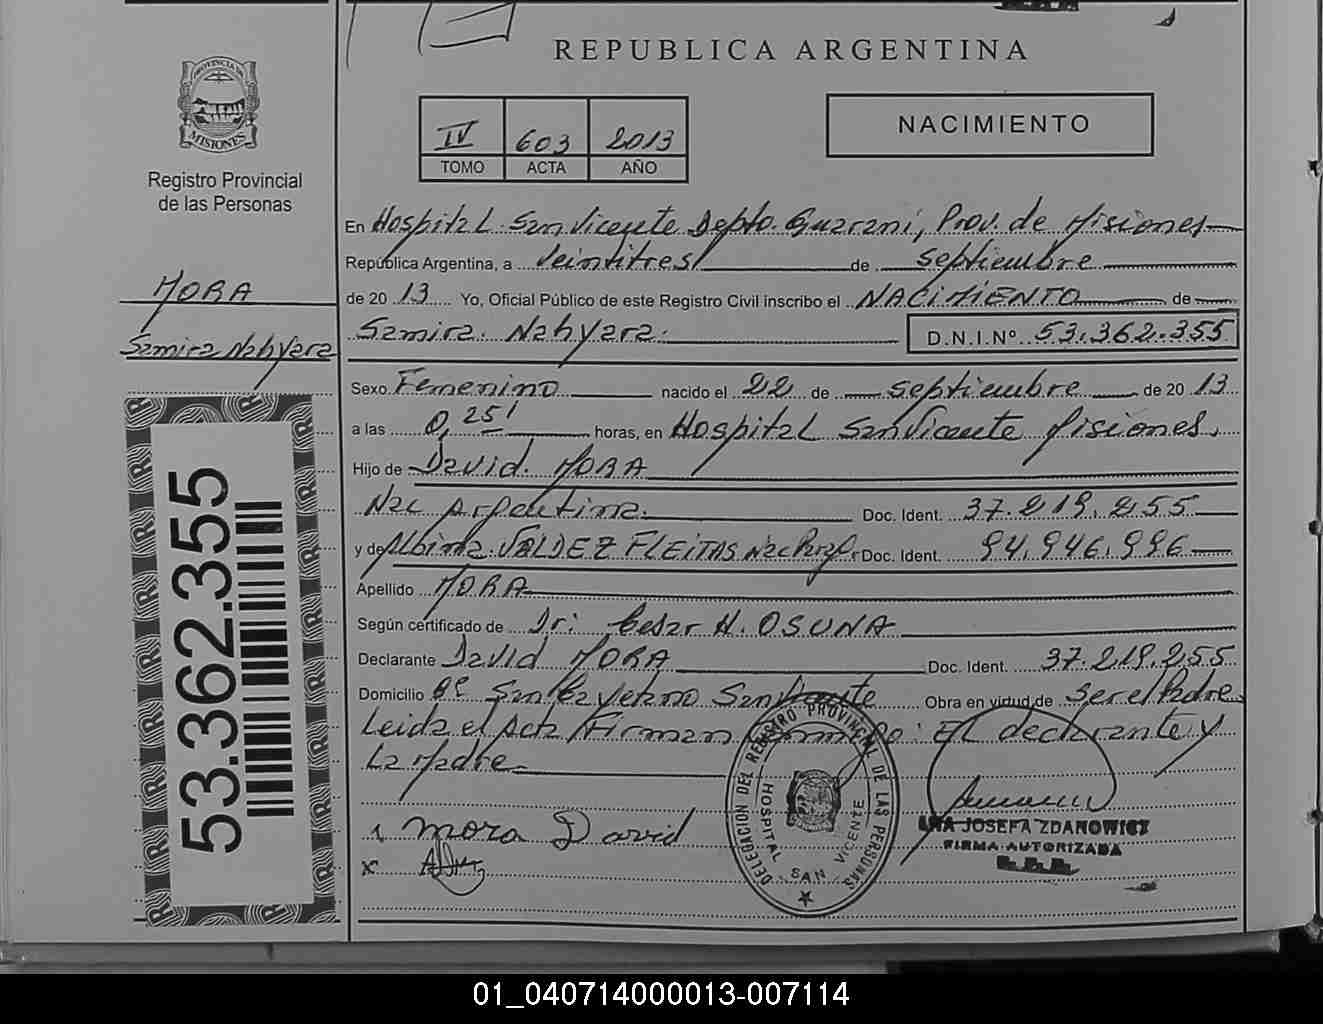 REPUBLICA ARGENTINA
PROVINCIA DE
MISIONES
Registro Provincial
de las Personas
IV 603 2013
TOMO ACTA AÑO
NACIMIENTO
En Hospital San Vicente Depto. Guarani, Prov. de Misiones
República Argentina, a veintitres de septiembre
de 20 13 Yo, Oficial Público de este Registro Civil inscribo el NACIMIENTO de
Samira Nahyara D.N.I.Nº 53.362.355
MORA
Samira Nahyara
Sexo Femenino nacido el 22 de septiembre de 20 13
a las 0,25' horas, en Hospital San Vicente Misiones.
Hijo de David MORA
Nac Argentina. Doc. Ident. 37.219.255
y de Albina VALDEZ FLEITAS Nac Doc. Ident. 94.946.996
Apellido MORA
Según certificado de Dr. Cesar H. OSUNA
Declarante David MORA Doc. Ident. 37.219.255
Domicilio San Vicente Obra en virtud de ser el Padre
Leida el Acta Firman El declarante y
La Madre
mora David
x
53.362.355
DELEGACION DEL REGISTRO PROVINCIAL DE LAS PERSONAS
HOSPITAL SAN VICENTE
JOSEFA ZDANOWICZ
FIRMA AUTORIZADA
01_040714000013-007114